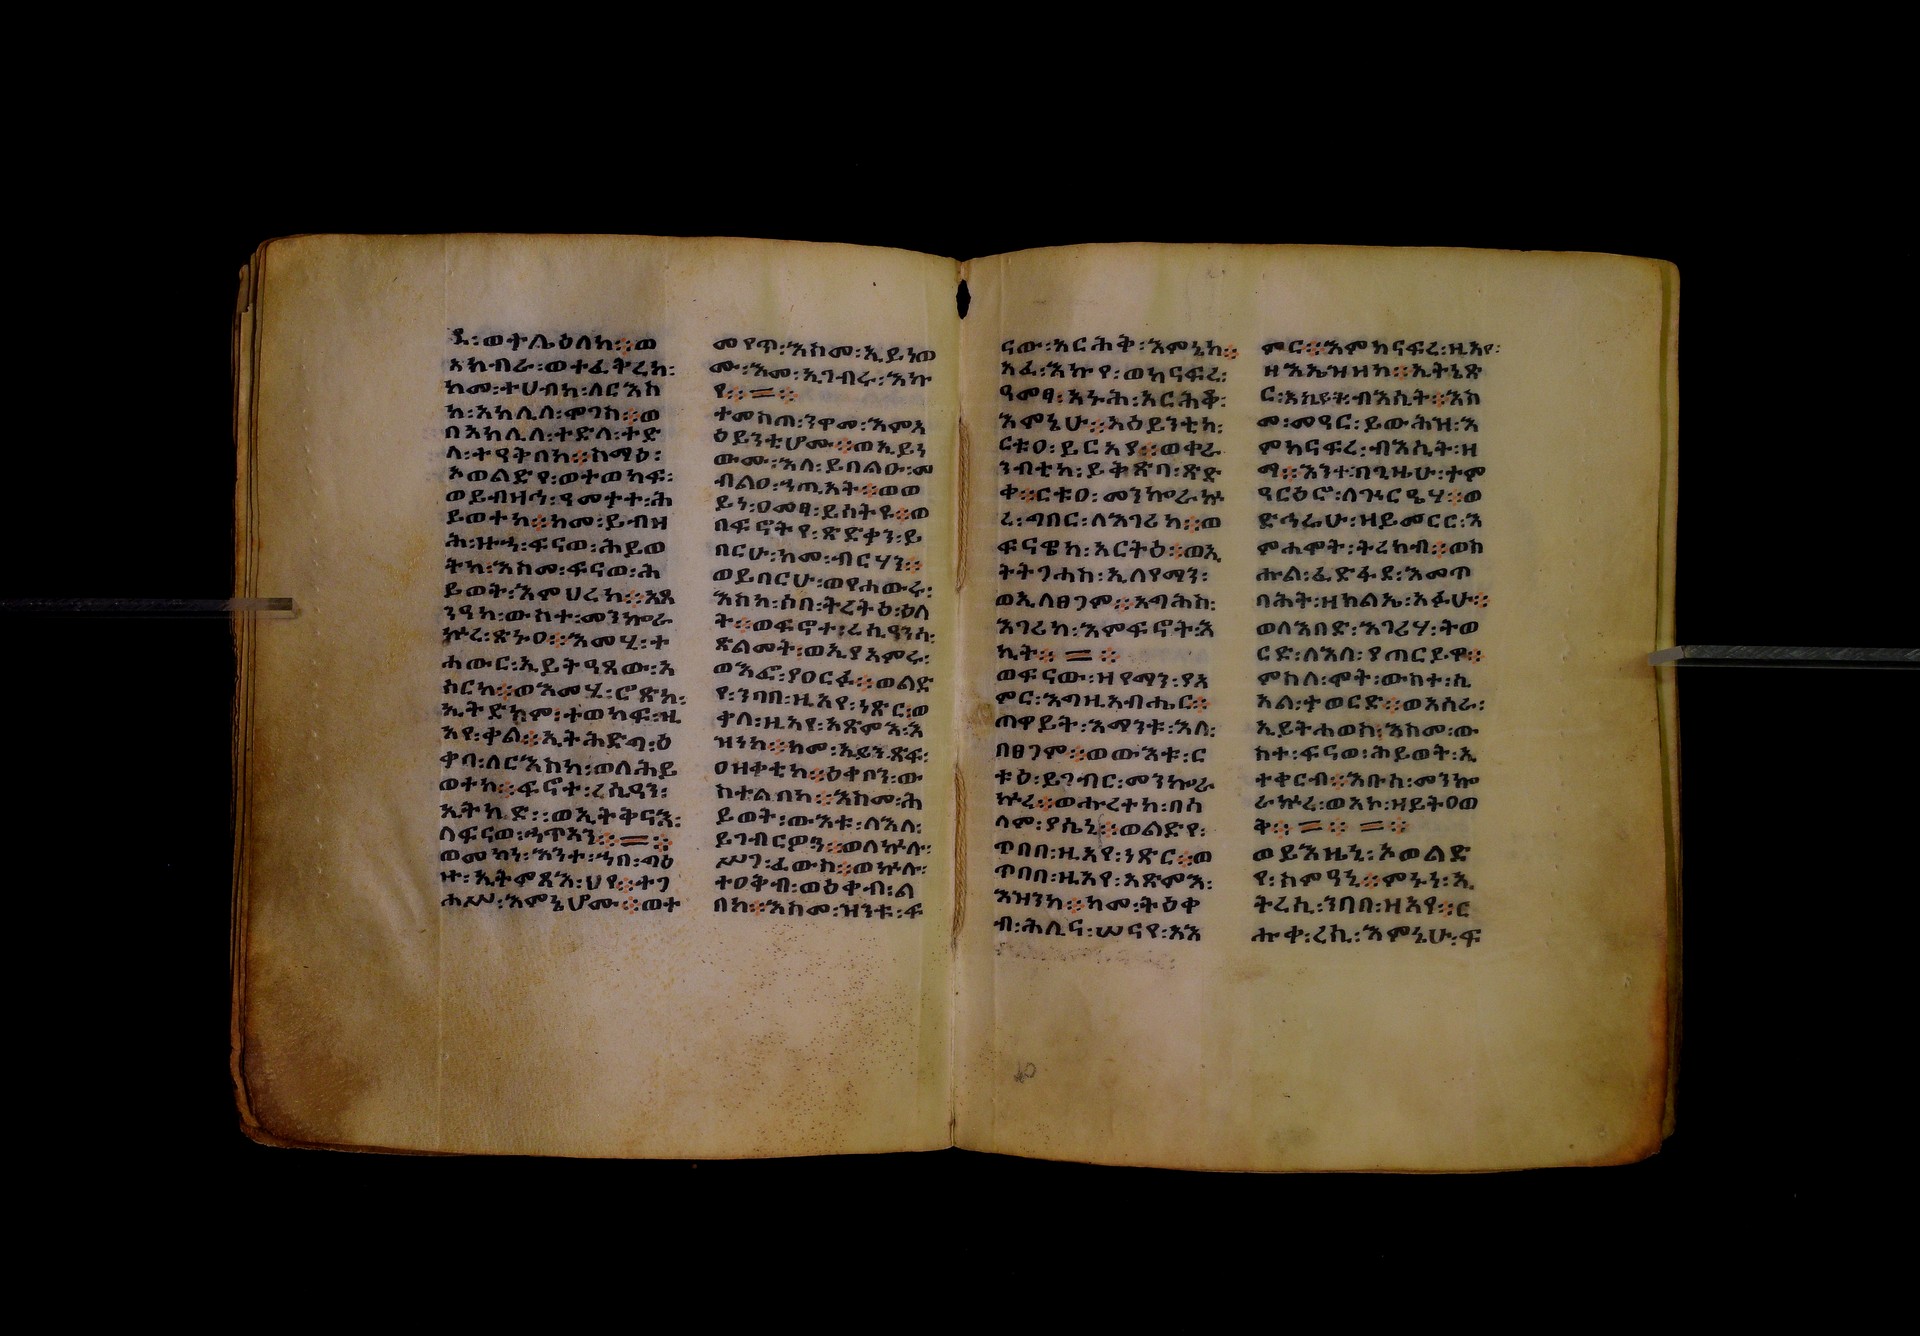 ዳ፡ወተሌዕለከ።ወ
አክብራ፡ወተፈቅረከ፡
ከመ፡ተሀብከ፡ለርእስ
ከ፡አክሊለ፡ሞገስ።ወ
በአክሊለ፡ተድላ፡ተድ
ለ፡ተዓትበከ።ስማዕ፡
ኦወልድየ፡ወተወከፍ፡
ወይብዝኅ፡ዓመተተ፡ሕ
ይወተከ።ከመ፡ይብዝ
ሕ፡ዝኀ፡ፍናወ፡ሕይወ
ትከ፡እስመ፡ፍናወ፡ሕ
ይወት፡እምሀረከ።አጸ
ንዓከ፡ውስተ፡መንኰራ
ኵረ፡ጽኑዐ።እመሂ፡ተ
ሐውር፡ኢይትዓጸው፡አ
ሰርከ።ወእመሂ፡ሮጽከ፡
ኢትደክም፡ተወከፍ፡ዚ
አየ፡ቃል።ኢትሕድግ፡ዕ
ቀባ፡ለርእስከ፡ወለሕይ
ወተከ።ፍኖተ፡ረሲዓን፡
ኢትኪድ።ወኢትቅናእ፡
ለፍናወ፡ኃጥኣን።=።
ወመካነ፡እንተ፡ኀበ፡ግዕ
ዙ፡ኢትሞጻእ፡ህየ።ተገ
ሐሥ፡እምኔሆሙ።ወተ
መየጥ፡እስመ፡ኢይነው
ሙ፡እመ፡ኢገብሩ፡እኩ
የ።=።
ተመስጠ፡ንዋመ፡እምአ
ዕይንቲሆሙ።ወኢይነ
ውሙ፡እለ፡ይበልዑ፡መ
ብልዐ፡ኃጢአት።ወወ
ይነ፡ዐመፃ፡ይሰትዩ።ወ
በፍኖትየ፡ጽድቃን፡ይ
በርሁ፡ከመ፡ብርሃን።
ወይበርሁ፡ወየሐውሩ፡
እስከ፡ሶበ፡ትረትዕ፡ዕለ
ት።ወፍኖተ፡ረሲዓንሰ፡
ጽልመት፡ወኢያአምሩ፡
ወእፎ፡ያዐርፉ።ወልድ
የ፡ንባበ፡ዚአየ፡ነጽር፡ወ
ቃለ፡ዚአየ፡አጽምእ፡እ
ዝነከ።ከመ፡አይንጽፍ፡
ዐዘቀቲከ።ዕቀቦን፡ው
ስተልበከ።እስመ፡ሕ
ይወት፡ውእቱ፡ለእለ፡
ይገብርዎን።ወለኵሉ፡
ሥጋ፡ፈውስ።ወኵሉ፡
ተዐቅብ፡ወዕቀብ፡ል
በከ።እስመ፡ዝንቱ፡ፍ
ናው፡አርሕቅ፡እምኔከ።
አፈ፡እኩየ፡ወከናፍረ፡
ዓመፃ፡እኑሕ፡አርሕቅ፡
እምኔሁ።አዕይንቲከ፡
ርቱዐ፡ይርአያ።ወቀራ
ንብቲከ፡ይቅጽባ፡ጽድ
ቀ።ርቱዐ፡መንኰራኵ
ረ፡ግበር፡ለእገሪከ።ወ
ፍናዌከ፡አርትዕ።ወኢ
ትትገሐስ፡ኢለየማን፡
ወኢለፀጋም።አግሕስ፡
እገሪከ፡እምፍኖት፡እ
ኪት።=።
ወፍናው፡ዝየማን፡ያአ
ምር፡እግዚአብሔር።
ጠዋይት፡እማንቱ፡እለ፡
በፀጋም።ወውእቱ፡ር
ቱዕ፡ይገብር፡መንኰራ
ኵረ።ወሑረተከ፡በሰ
ላም፡ያሴኒ።ወልድየ፡
ጥበበ፡ዚአየ፡ነጽር።ወ
ጥበበ፡ዚአየ፡አጽምእ፡
እዝንከ።ከመ፡ትዕቀ
ብ፡ሕሊና፡ሠናየ፡አእ
ምር።እምከናፍረ፡ዚአየ፡
ዘእኤዝዘከ።ኢትኔጽ
ር፡እኪይቱ፡ብእሲት።እስ
መ፡መዓር፡ይውሕዝ፡እ
ምከናፍረ፡ብእሲት፡ዘ
ማ።እንተ፡በጊዜሁ፡ተም
ዓርዕሮ፡ለጕርዔሃ።ወ
ድኅሬሁ፡ዘይመርር፡እ
ምሐሞት፡ትረክብ።ወስ
ሑል፡ፈድፋደ፡እመጥ
ባሕት፡ዘክልኤ፡አፉሁ።
ወለእበድ፡እገሪሃ፡ትወ
ርድ፡ለእለ፡ያጠርይዋ።
ምስለ፡ሞት፡ውስተ፡ሲ
ኦል፡ተወርድ።ወአሰራ፡
ኢይትሐወስ፡እስመ፡ው
ስተ፡ፍናወ፡ሕይወት፡ኢ
ተቀርብ።እቡስ፡መንኰ
ራኵረ፡ወአኮ፡ዘይትዐወ
ቅ።=።=።
ወይእዜኒ፡ኦወልድ
የ፡ስምዓኒ።ምኑነ፡ኢ
ትረሲ፡ንባበ፡ዘአየ።ር
ሑቀ፡ረሲ፡እምኔሁ፡ፍ